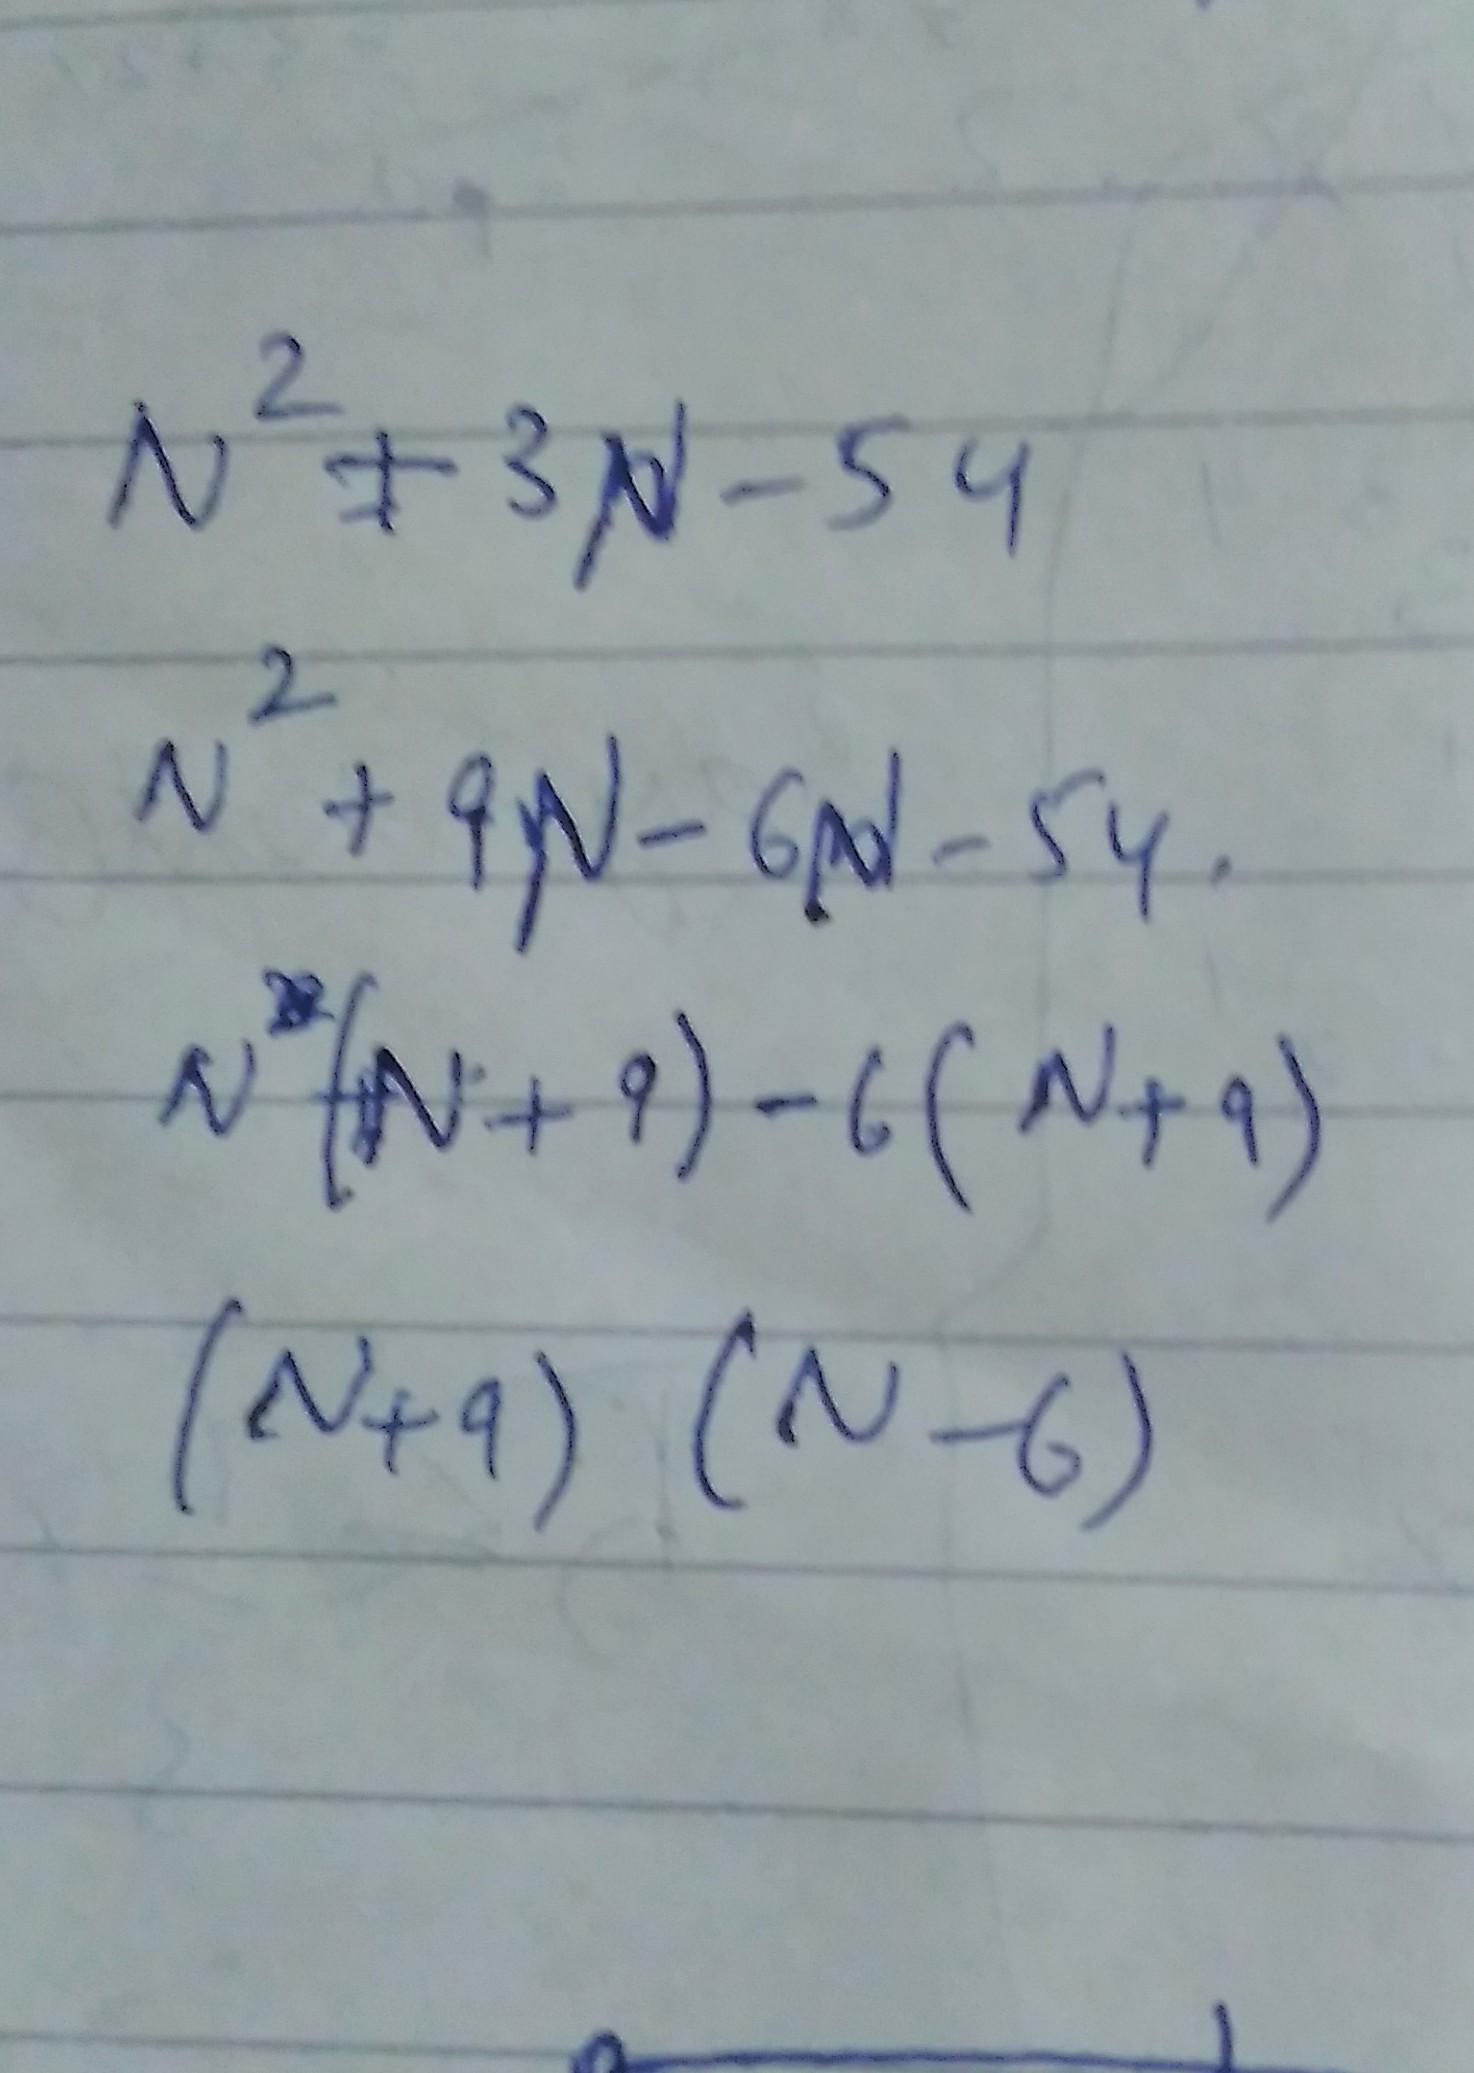 N² + 3N - 54
N² + 9N - 6N - 54.
N (N + 9) - 6 (N + 9)
(N + 9) (N - 6)